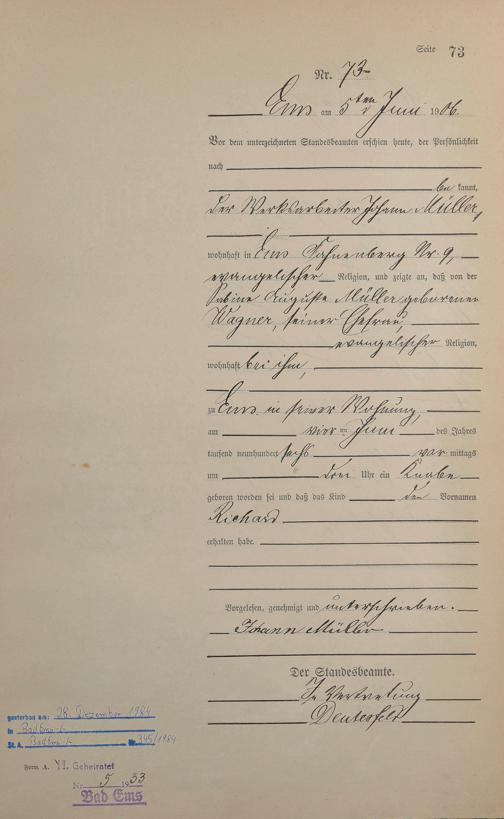 Seite 73
Nr. 73
Ems am 5ten Juni 1906.
Vor dem unterzeichneten Standesbeamten erschien heute, der Persönlichkeit
nach
be kannt,
der Werksarbeiter Johann Müller,
wohnhaft in Ems Nr. 9,
evangelischer Religion, und zeigte an, daß von der
Sabine Auguste Müller geborenen
Wagner, seiner Ehefrau,
evangelischer Religion,
wohnhaft bei ihm,
zu Ems in seiner Wohnung,
am vier ten Juni des Jahres
tausend neunhundert sechs vor mittags
um drei Uhr ein Knabe
geboren worden sei und daß das Kind den Vornamen
Richard
erhalten habe.
Vorgelesen, genehmigt und unterschrieben.
Johann Müller
Der Standesbeamte.
In Vertretung
gestorben am: 28. Dezember 1984
in Bad Ems
St. A. Bad Ems Nr. 345/1984
Form. A. Geheiratet
Nr. 5 1933
Bad Ems